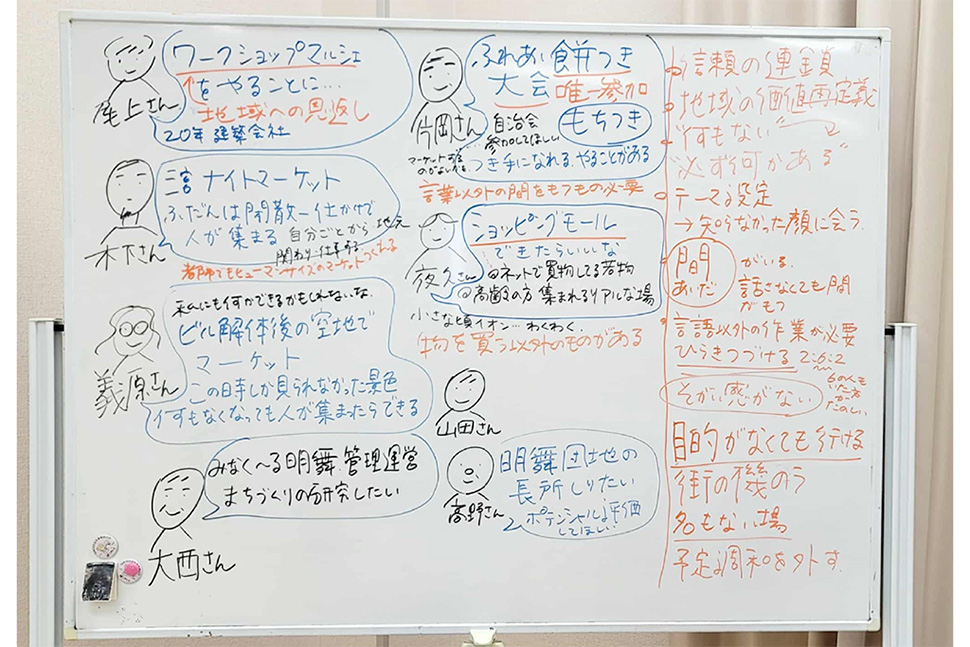 ワークショップマルシェ
をやることに…
地域への恩返し
20年 建築会社
尾上さん
三宮 ナイトマーケット
ふだんは閑散 一仕かけで
人が集まる
自分ごとから 地元
関わり 仕事する
都市でもヒューマンサイズのマーケットつくれる
木下さん
私にも何かできるかもしれないな.
ビル解体後の空地で
マーケット
この日寺しか見られなかった景色
何もなくなっても人が集まったらできる
義原さん
みなく〜る明舞 管理運営
まちづくりの研究したい
大西さん
ふれあい 餅つき
大会 唯一参加
もちつき
自治会
参加してほしい
つき手になれる、やることがある
片岡さん
マーケットする
言葉以外の間をもつもの必要
ショッピングモール
できたらいいな
ネットで買物してる若物
高齢の方 集まれるリアルな場
夜久さん
小さな頃イオン… わくわく.
物を買う以外のものがある
山田さん
明舞団地の
長所しりたい
ポテンシャルを評価
してほしい
高野さん
信頼の連鎖
地域の価値再定義
"何もない"
必ず何かある"
テーマを設定
→知らなかった顔に会う.
間 がいる.
あいだ 話さなくても間
がもつ
言語以外の作業が必要
ひらきつづける 2:6:2
6の人も
いた方
が
たのしい.
そがい感がない
目的がなくても行ける
街の機のう
名もない場
予定調和を外す.